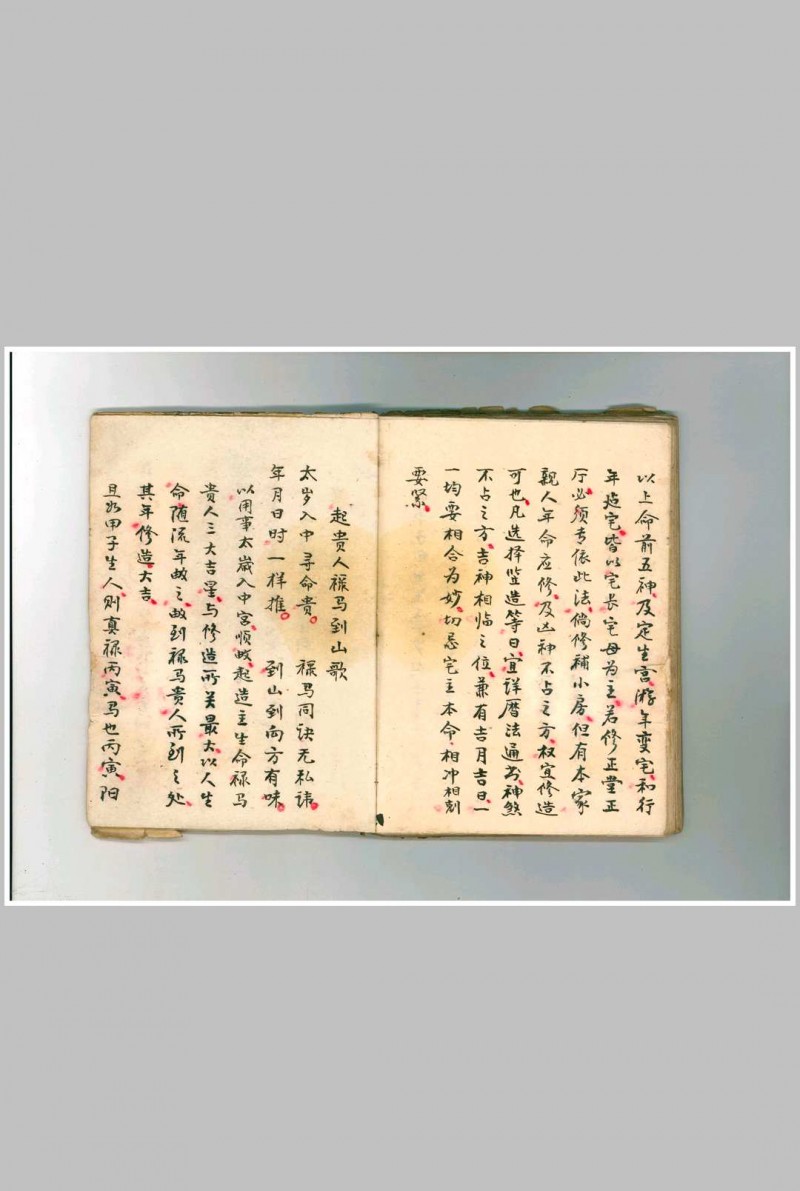 以上命前五神及定生宫游年变宅和行
年造宅，皆以宅长宅母为主，若修正堂正
厅必须专依此法，倘修补小房但有本家
亲人年命应修及凶神不占之方，权宜修造
可也，凡选择竖造等日，宜详曆法通书，神煞
不占之方，吉神相临之位，兼有吉月吉日，一
一均要相合为妙，切忌宅主本命，相冲相刻
要紧。
起贵人禄马到山歌
太岁入中寻命贵。禄马同诀无私讳。
年月日时一样推。到山到向方有味。
以用事太歲入中宫，顺
贵人三大吉星，与修造所关最大，以人生
命随流年
其年修造大吉。
且如甲子生人，则真禄丙寅，马也丙寅，阳